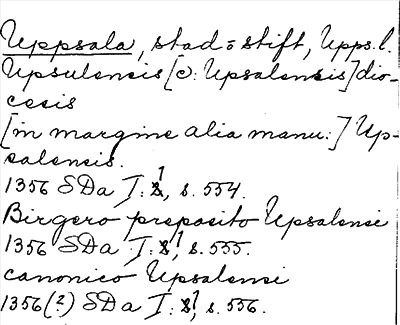 Uppsala, stad o stift, Upps. l.
Upsulensis [ɔ: Upsalensis] dio-
cesis
[in margine alia manu:] Up-
salensis.
1356 SDa I: 1, s. 554.
Birgero preposito Upsalensi
1356 SDa I: 1, s. 555.
canonico Upsalensi
1356(?) SDa I: 1, s. 556.